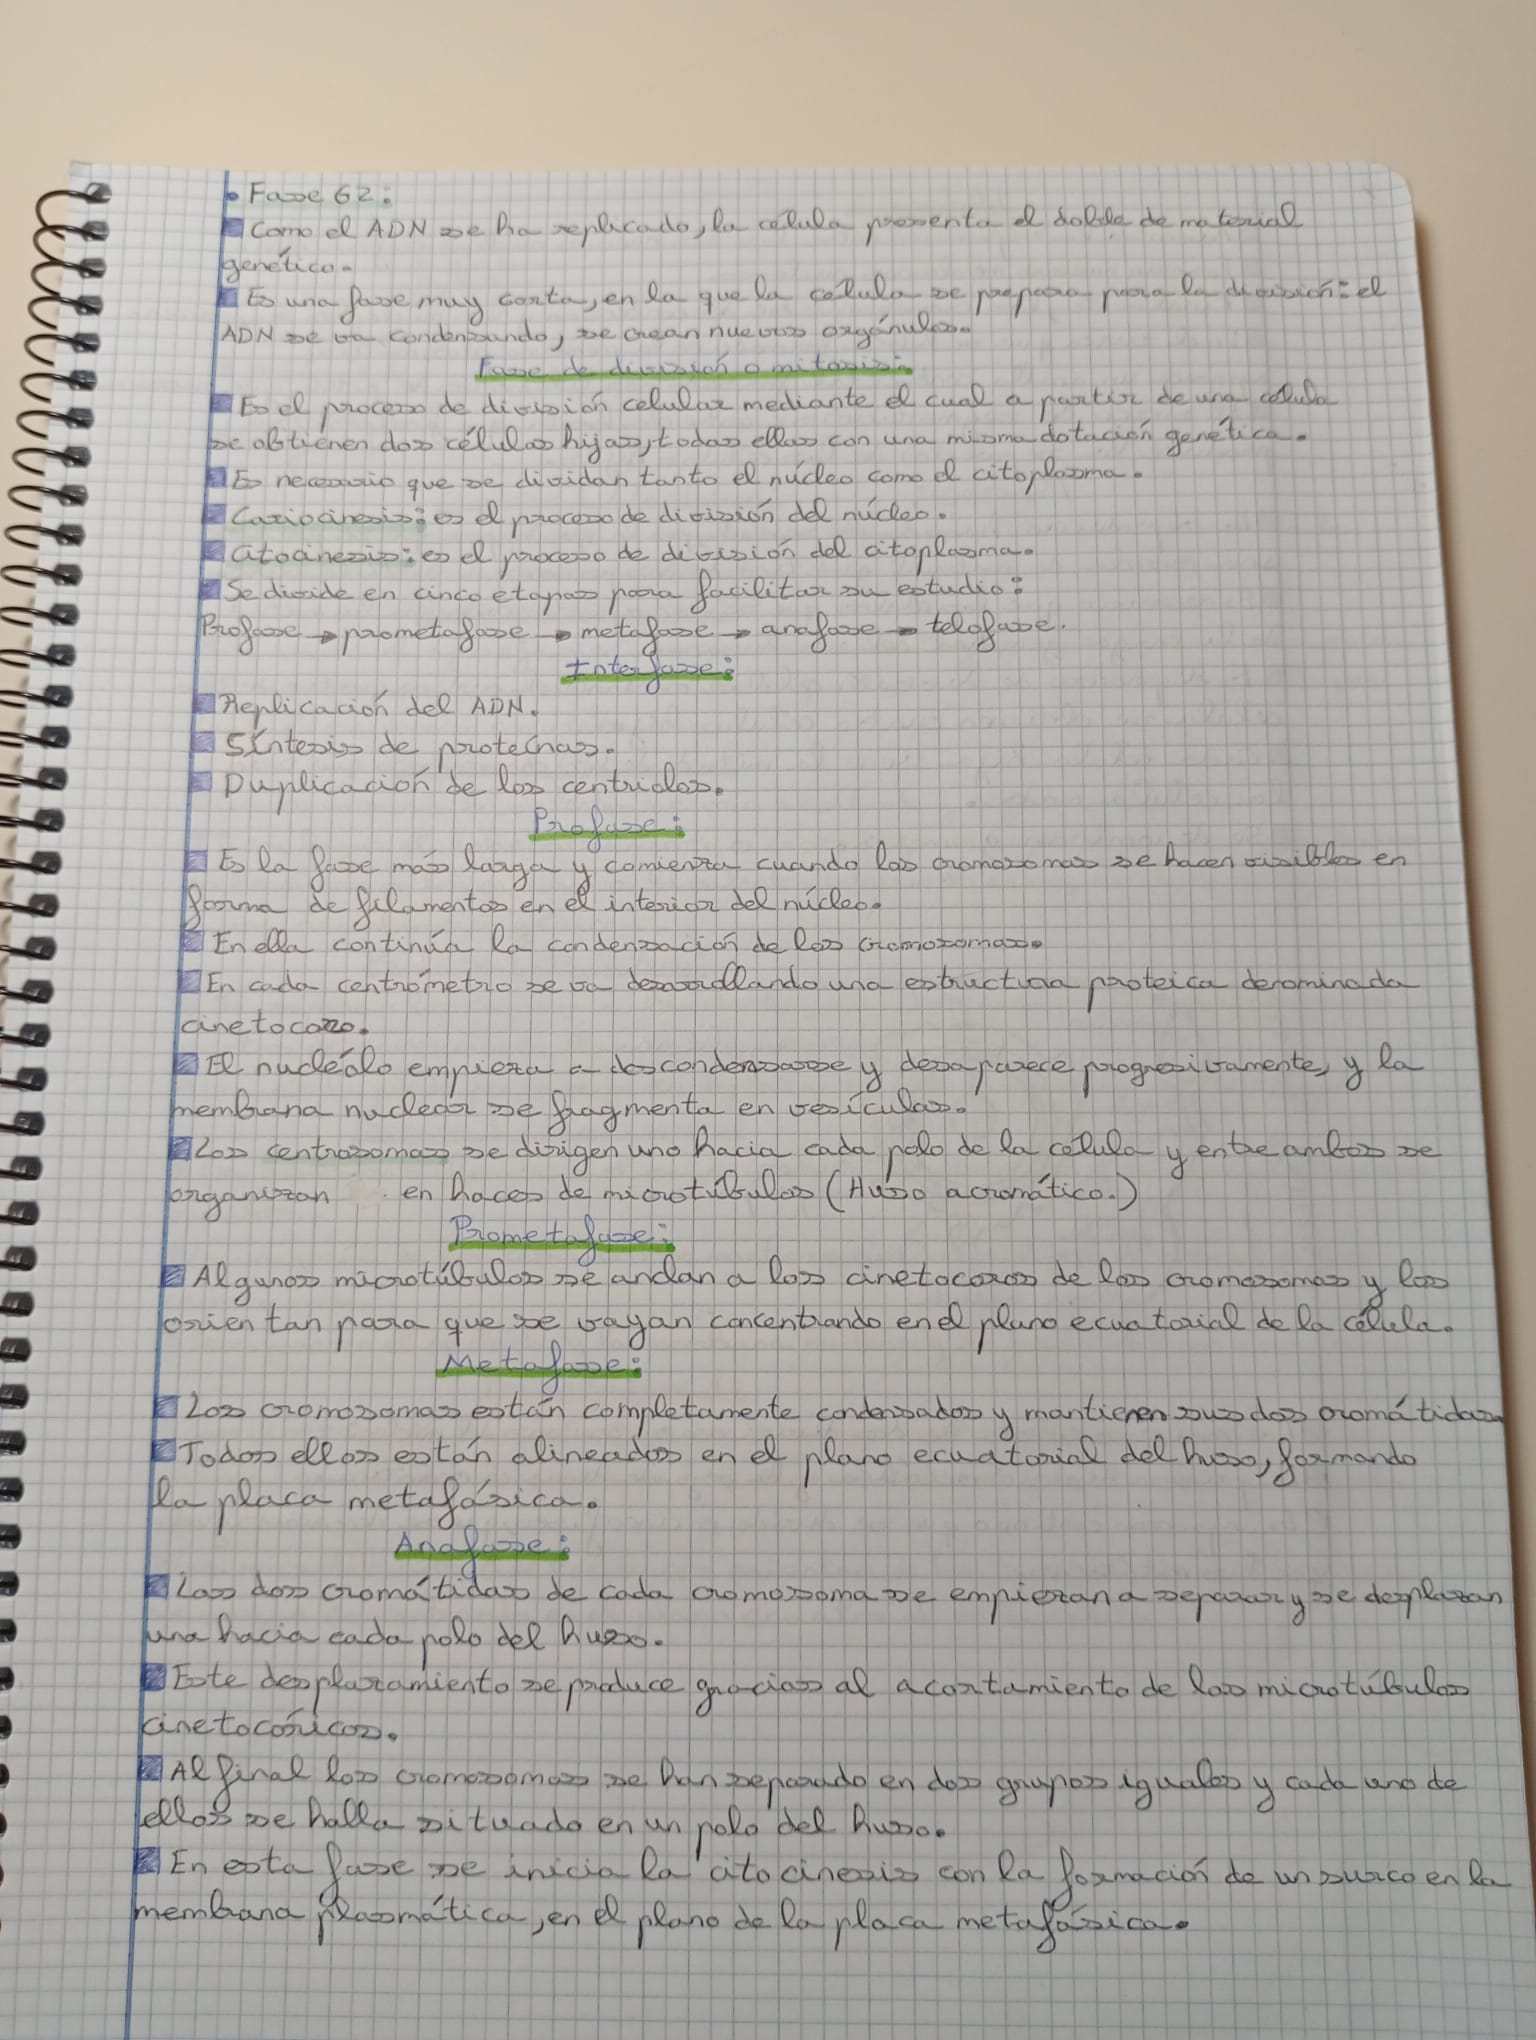 • Fase G2:
Como el ADN se ha replicado, la célula presenta el doble de material
genético.
Es una fase muy corta, en la que la célula se prepara para la división: el
ADN se va condensando, se crean nuevos orgánulos.
Fase de división o mitosis:
Es el proceso de división celular mediante el cual a partir de una célula
se obtienen dos células hijas, todas ellas con una misma dotación genética.
Es necesario que se dividan tanto el núcleo como el citoplasma.
Cariocinesis: es el proceso de división del núcleo.
Citocinesis: es el proceso de división del citoplasma.
Se divide en cinco etapas para facilitar su estudio:
Profase → prometafase → metafase → anafase → telofase.
Interfase:
Replicación del ADN.
Síntesis de proteínas.
Duplicación de los centriolos.
Profase:
Es la fase más larga y comienza cuando los cromosomas se hacen visibles en
forma de filamentos en el interior del núcleo.
En ella continúa la condensación de los cromosomas.
En cada centrómetro se va desarrollando una estructura proteica denominada
cinetocoro.
El nucleólo empieza a descondensarse y desaparece progresivamente, y la
membrana nuclear se fragmenta en vesículas.
Los centrosomas se dirigen uno hacia cada polo de la célula y entre ambos se
organizan en haces de microtúbulos (Huso acromático.)
Prometafase:
Algunos microtúbulos se anclan a los cinetocoros de los cromosomas y los
orientan para que se vayan concentrando en el plano ecuatorial de la célula.
Metafase:
Los cromosomas están completamente condensados y mantienen sus dos cromátidas
Todos ellos están alineados en el plano ecuatorial del huso, formando
la placa metafásica.
Anafase:
Las dos cromátidas de cada cromosoma se empiezan a separar y se desplazan
una hacia cada polo del huso.
Este desplazamiento se produce gracias al acortamiento de los microtúbulos
cinetocóricos.
Al final los cromosomas se han separado en dos grupos iguales y cada uno de
ellos se halla situado en un polo del huso.
En esta fase se inicia la citocinesis con la formación de un surco en la
membrana plasmática, en el plano de la placa metafásica.